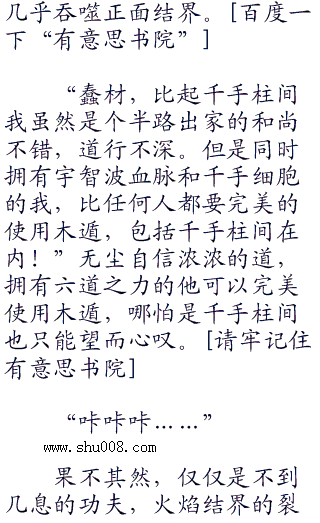 几乎吞噬正面结界。[百度一
下“有意思书院”]
“蠢材，比起千手柱间
我虽然是个半路出家的和尚
不错，道行不深。但是同时
拥有宇智波血脉和千手细胞
的我，比任何人都要完美的
使用木遁，包括千手柱间在
内！”无尘自信浓浓的道，
拥有六道之力的他可以完美
使用木遁，哪怕是千手柱间
也只能望而心叹。[请牢记住
有意思书院]
“咔咔咔……”
www.shu008.com
果不其然，仅仅是不到
几息的功夫，火焰结界的裂